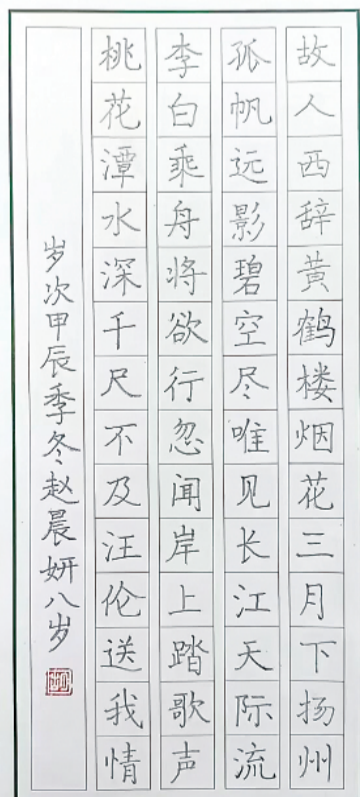 故人西辞黄鹤楼烟花三月下扬州
孤帆远影碧空尽唯见长江天际流
李白乘舟将欲行忽闻岸上踏歌声
桃花潭水深千尺不及汪伦送我情
岁次甲辰季冬赵晨妍八岁